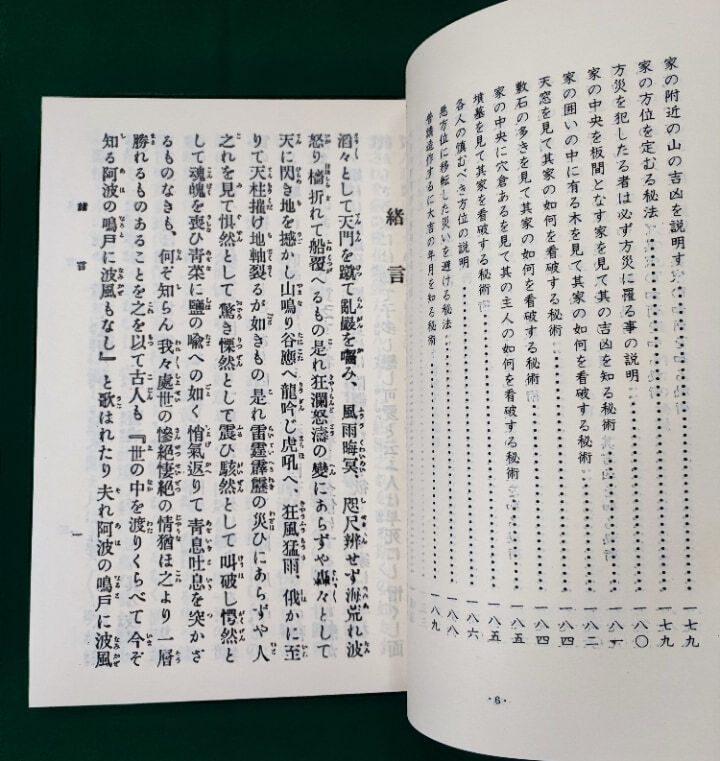 家の附近の山の吉凶を説明す……一七九
家の方位を定むる秘法……一七九
方災を犯したる者は必ず方災に罹る事の説明……一八〇
家の中央を板間となす家を見て其の吉凶を知る秘術……一八一
家の囲いの中に有る木を見て其家の如何を看破する秘術……一八二
天窓を見て其家の如何を看破する秘術……一八四
敷石の多きを見て其家の如何を看破する秘術……一八四
家の中央に穴倉あるを見て其の主人の如何を看破する秘術……一八五
墳墓を見て其家を看破する秘術……一八五
各人の慎むべき方位の説明……一八六
悪方位に移転した災いを避ける秘法……一八八
普請造作するに大吉の年月を知る秘術……一八九
・6・
緒言
滔々として天門を蹴て亂巖を嚙み、風雨晦冥、咫尺辨せず海荒れ波
怒り檣折れて船覆へるもの是れ狂瀾怒濤の變にあらずや轟々として
天に閃き地を撼かし山鳴り谷應へ龍吟じ虎吼へ、狂風猛雨、俄かに至
りて天柱摧け地軸裂るが如きもの是れ雷霆霹靂の災ひにあらずや人
之れを見て惧然として驚き慄然として震ひ駭然として叫破し愕然と
して魂魄を喪ひ青菜に鹽の喩への如く悄氣返りて青息吐息を突かざ
るものなきも、何ぞ知らん我々處世の慘絶悽絶の情猶ほ之より一層
勝れるものあることを之を以て古人も『世の中を渡りくらべて今ぞ
知る阿波の鳴戸に波風もなし』と歌はれたり夫れ阿波の鳴戸に波風
緒言
一